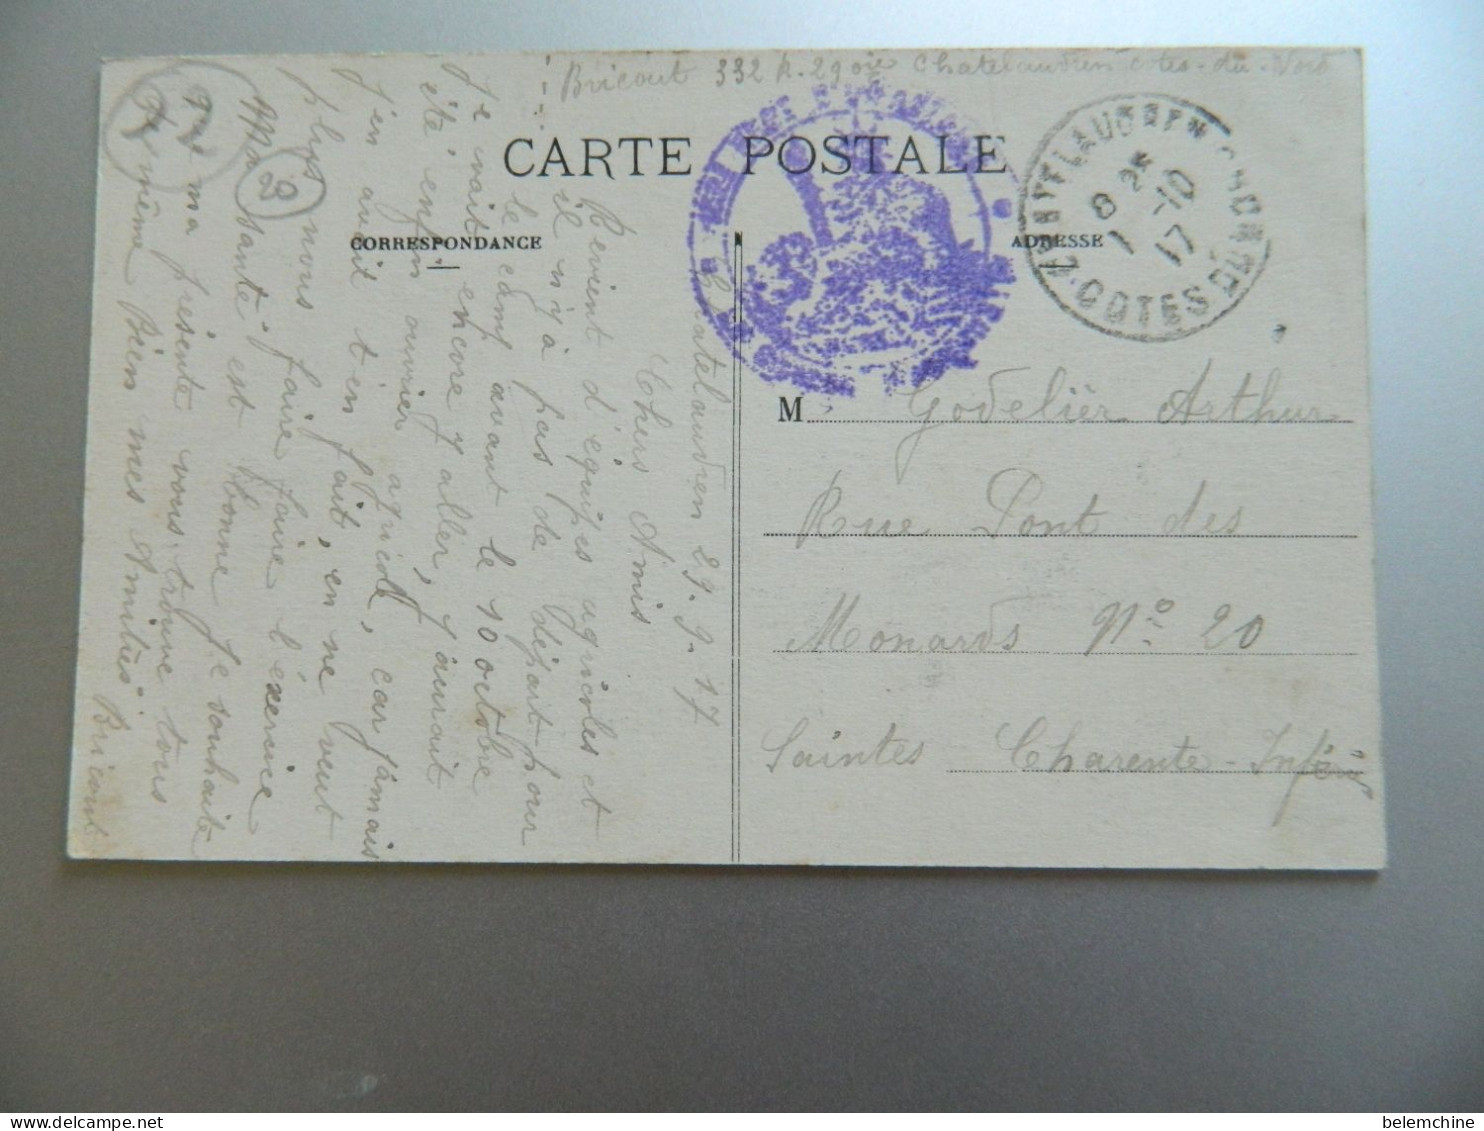 Bricout 332 R. 29 Cie Chatelaudren Cotes-du-Nord
CARTE POSTALE
CORRESPONDANCE
ADRESSE
CHATELAUDREN
8 25
1 -10
17
COTES DU NORD
Chatelaudren 29.9.17
Chers Amis
Revient d'équipes agricoles et
il n'y à pas de départ pour
le camp avant le 10 octobre
Je vait encore y aller, j'aurait
été enfin ouvrier agricole, car jámais
j'en avait t'en fait, en ne veut
plus nous faire faire l'éxercice
Ma santé est bonne Je souhaite
que ma présente vous trouve tous
de même Bien mes Amitiés Bricout
20
M Godelier Arthur
Rue Pont des
Monards N° 20
Saintes Charente-Infér
belemchine